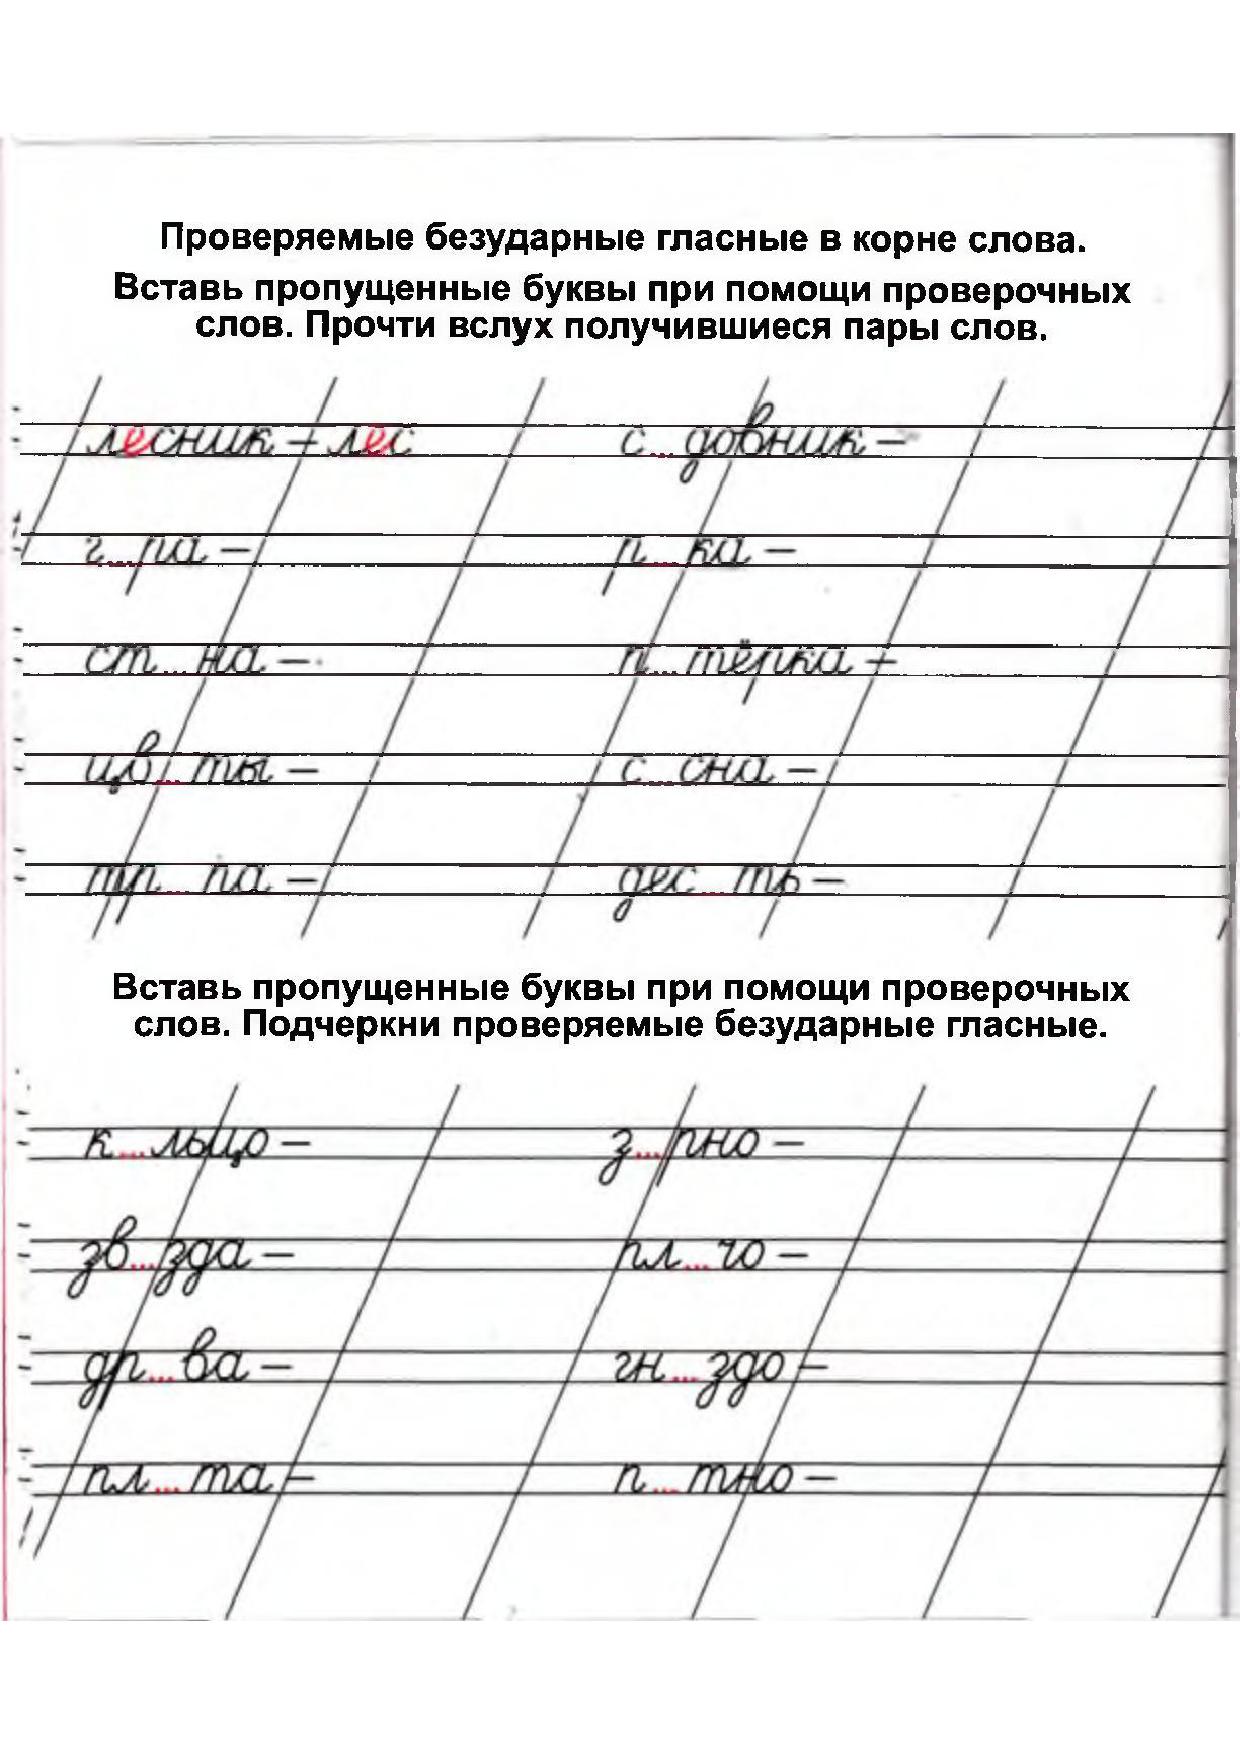 Проверяемые безударные гласные в корне слова.
Вставь пропущенные буквы при помощи проверочных
слов. Прочти вслух получившиеся пары слов.
лесник – лес с...довник –
г...ра – р...ка –
ст...на – п...тёрка –
цв...ты – с...сна –
тр...па – дес...ть –
Вставь пропущенные буквы при помощи проверочных
слов. Подчеркни проверяемые безударные гласные.
к...льцо – з...рно –
зв...зда – пл...чо –
др...ва – гн...здо –
пл...та – п...тно –